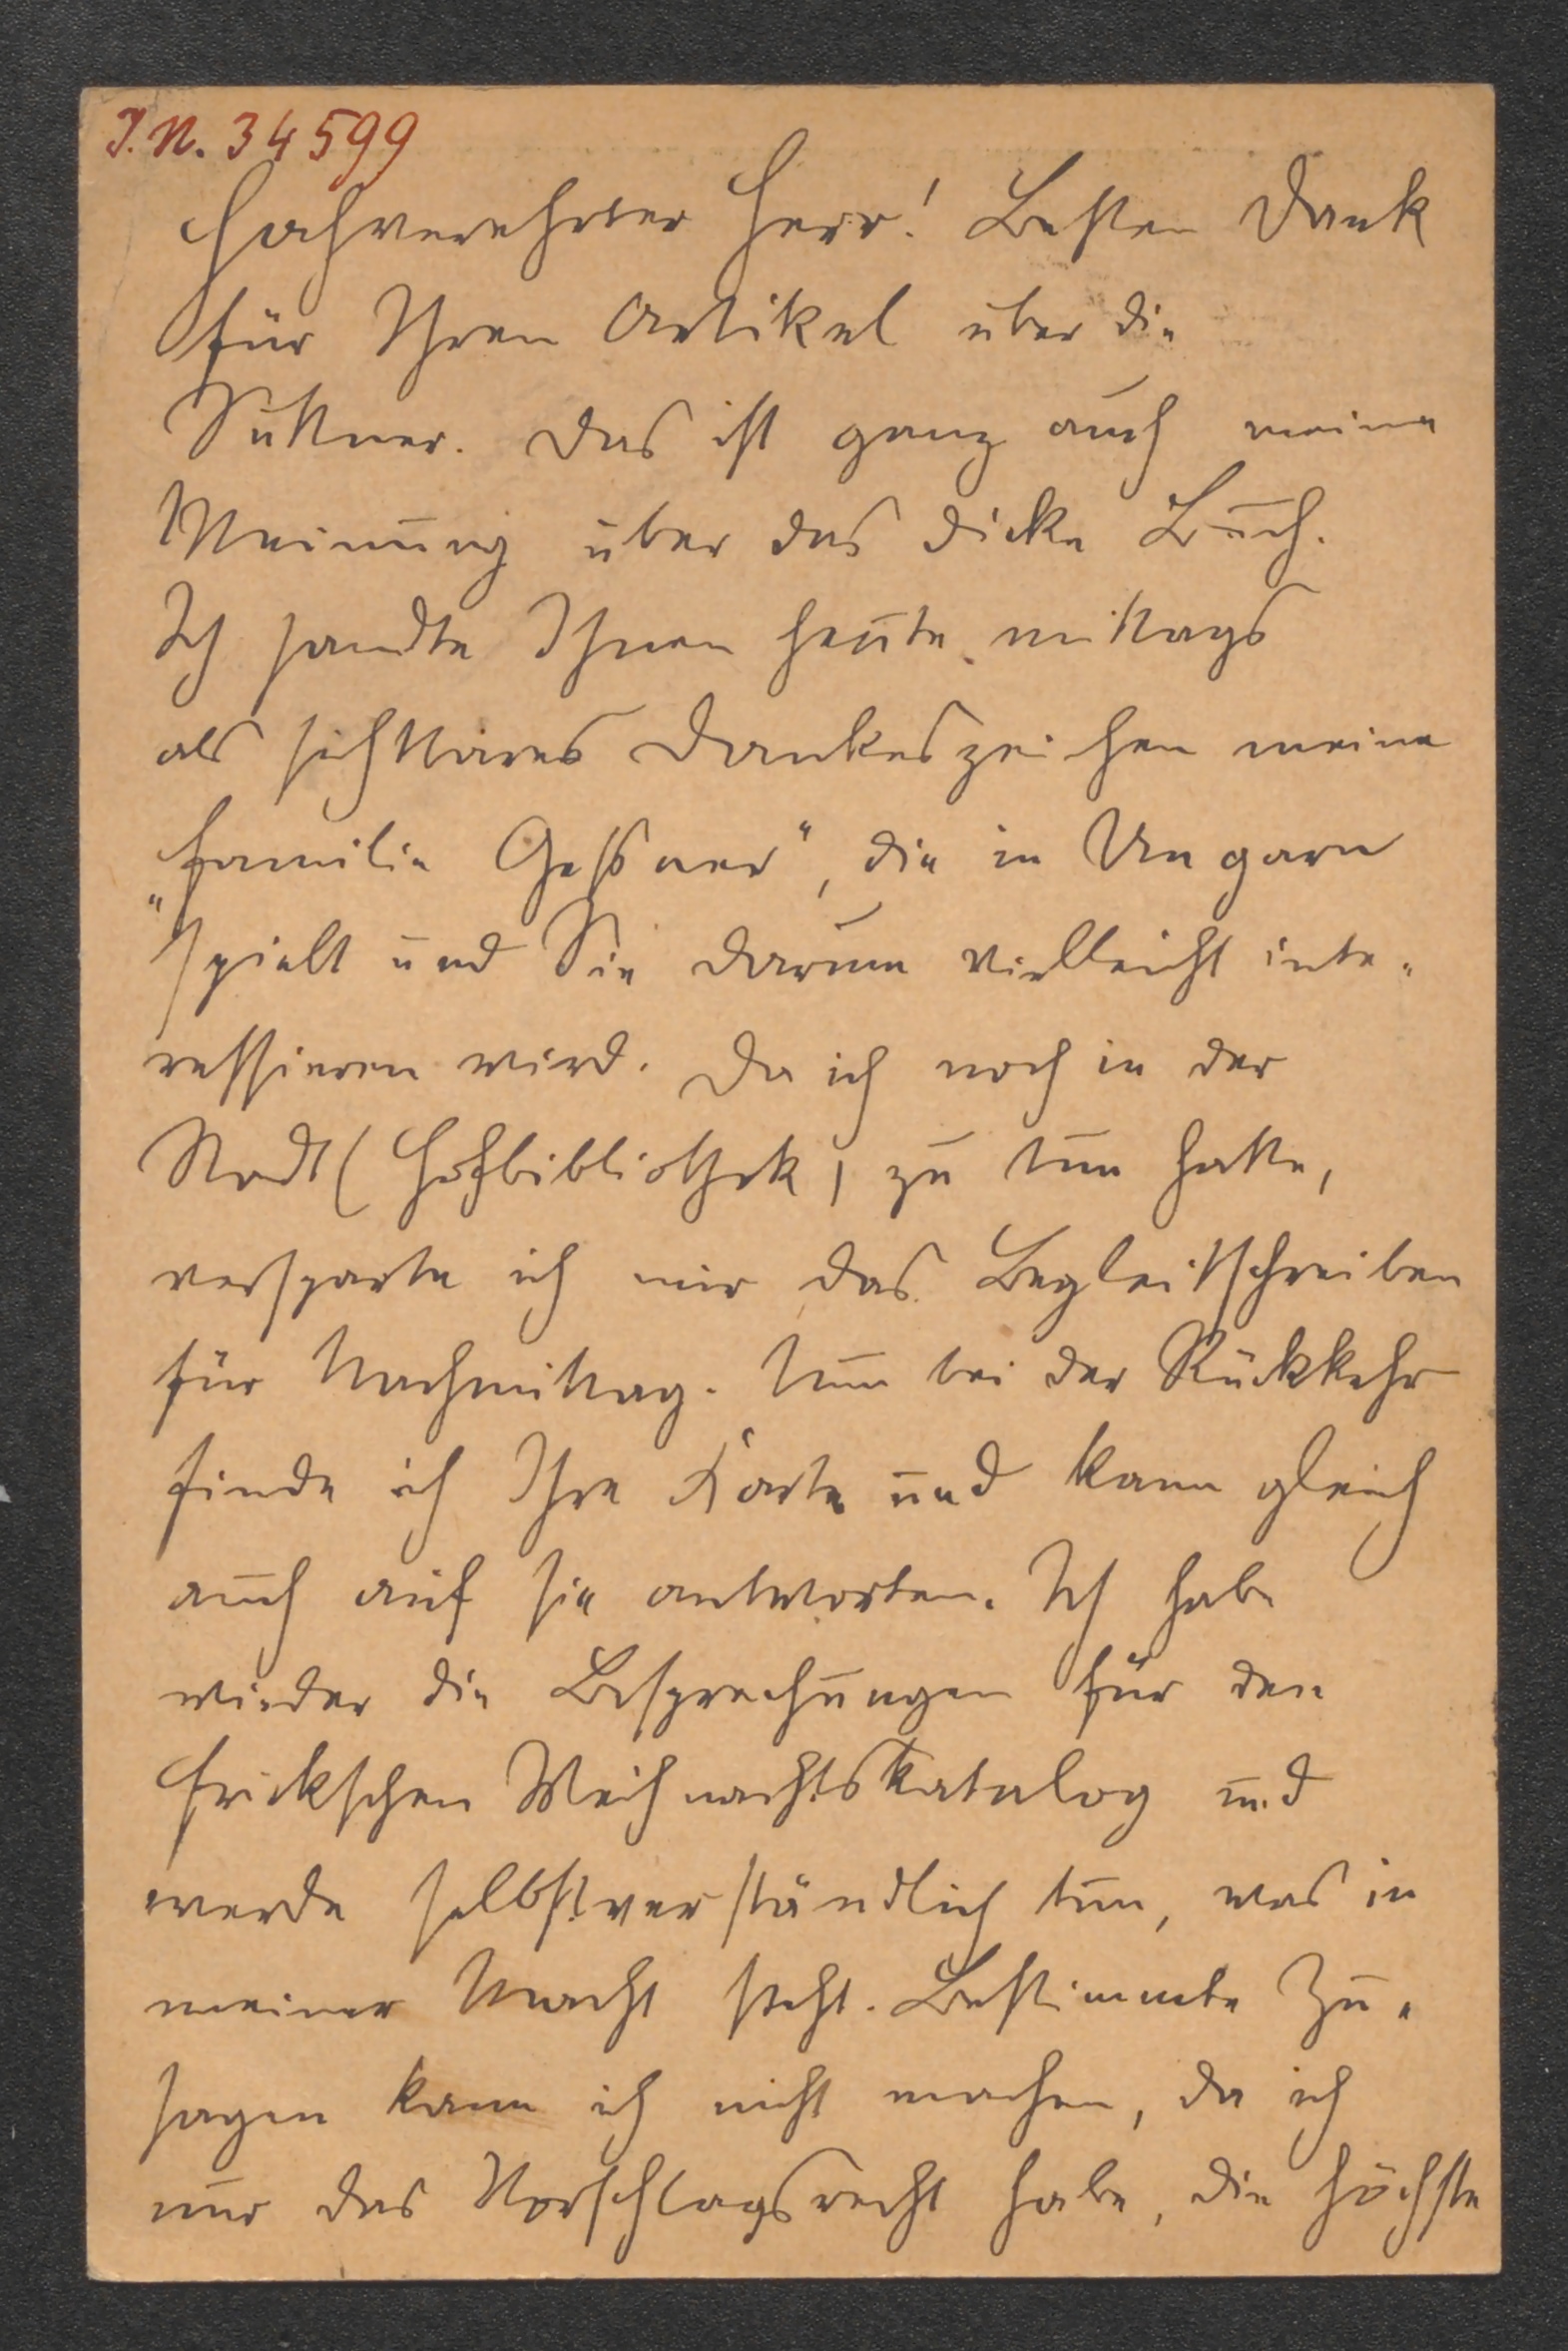 I.N. 34599
Hochverehrter Herr! Besten Dank
für Ihren Artikel über die
Suttner. Das ist ganz auch meine
Meinung über das dicke Buch.
Ich sandte Ihnen heute mittags
als sichtbares Dankeszeichen meine
„Familie Geßner“, die in Ungarn
spielt und Sie darum vielleicht inte-
ressieren wird. Da ich noch in der
Stadt (Hofbibliothek) zu tun hatte,
versparte ich mir das Begleitschreiben
für Nachmittag. Nun bei der Rückkehr
finde ich Ihre Karte und kann gleich
auch auf sie antworten. Ich habe
wieder die Besprechungen für den
Frickschen Weihnachtskatalog und
werde selbstverständlich tun, was in
meiner Macht steht. Bestimmte Zu-
sagen kann ich nicht machen, da ich
nur das Vorschlagsrecht habe, die höchste